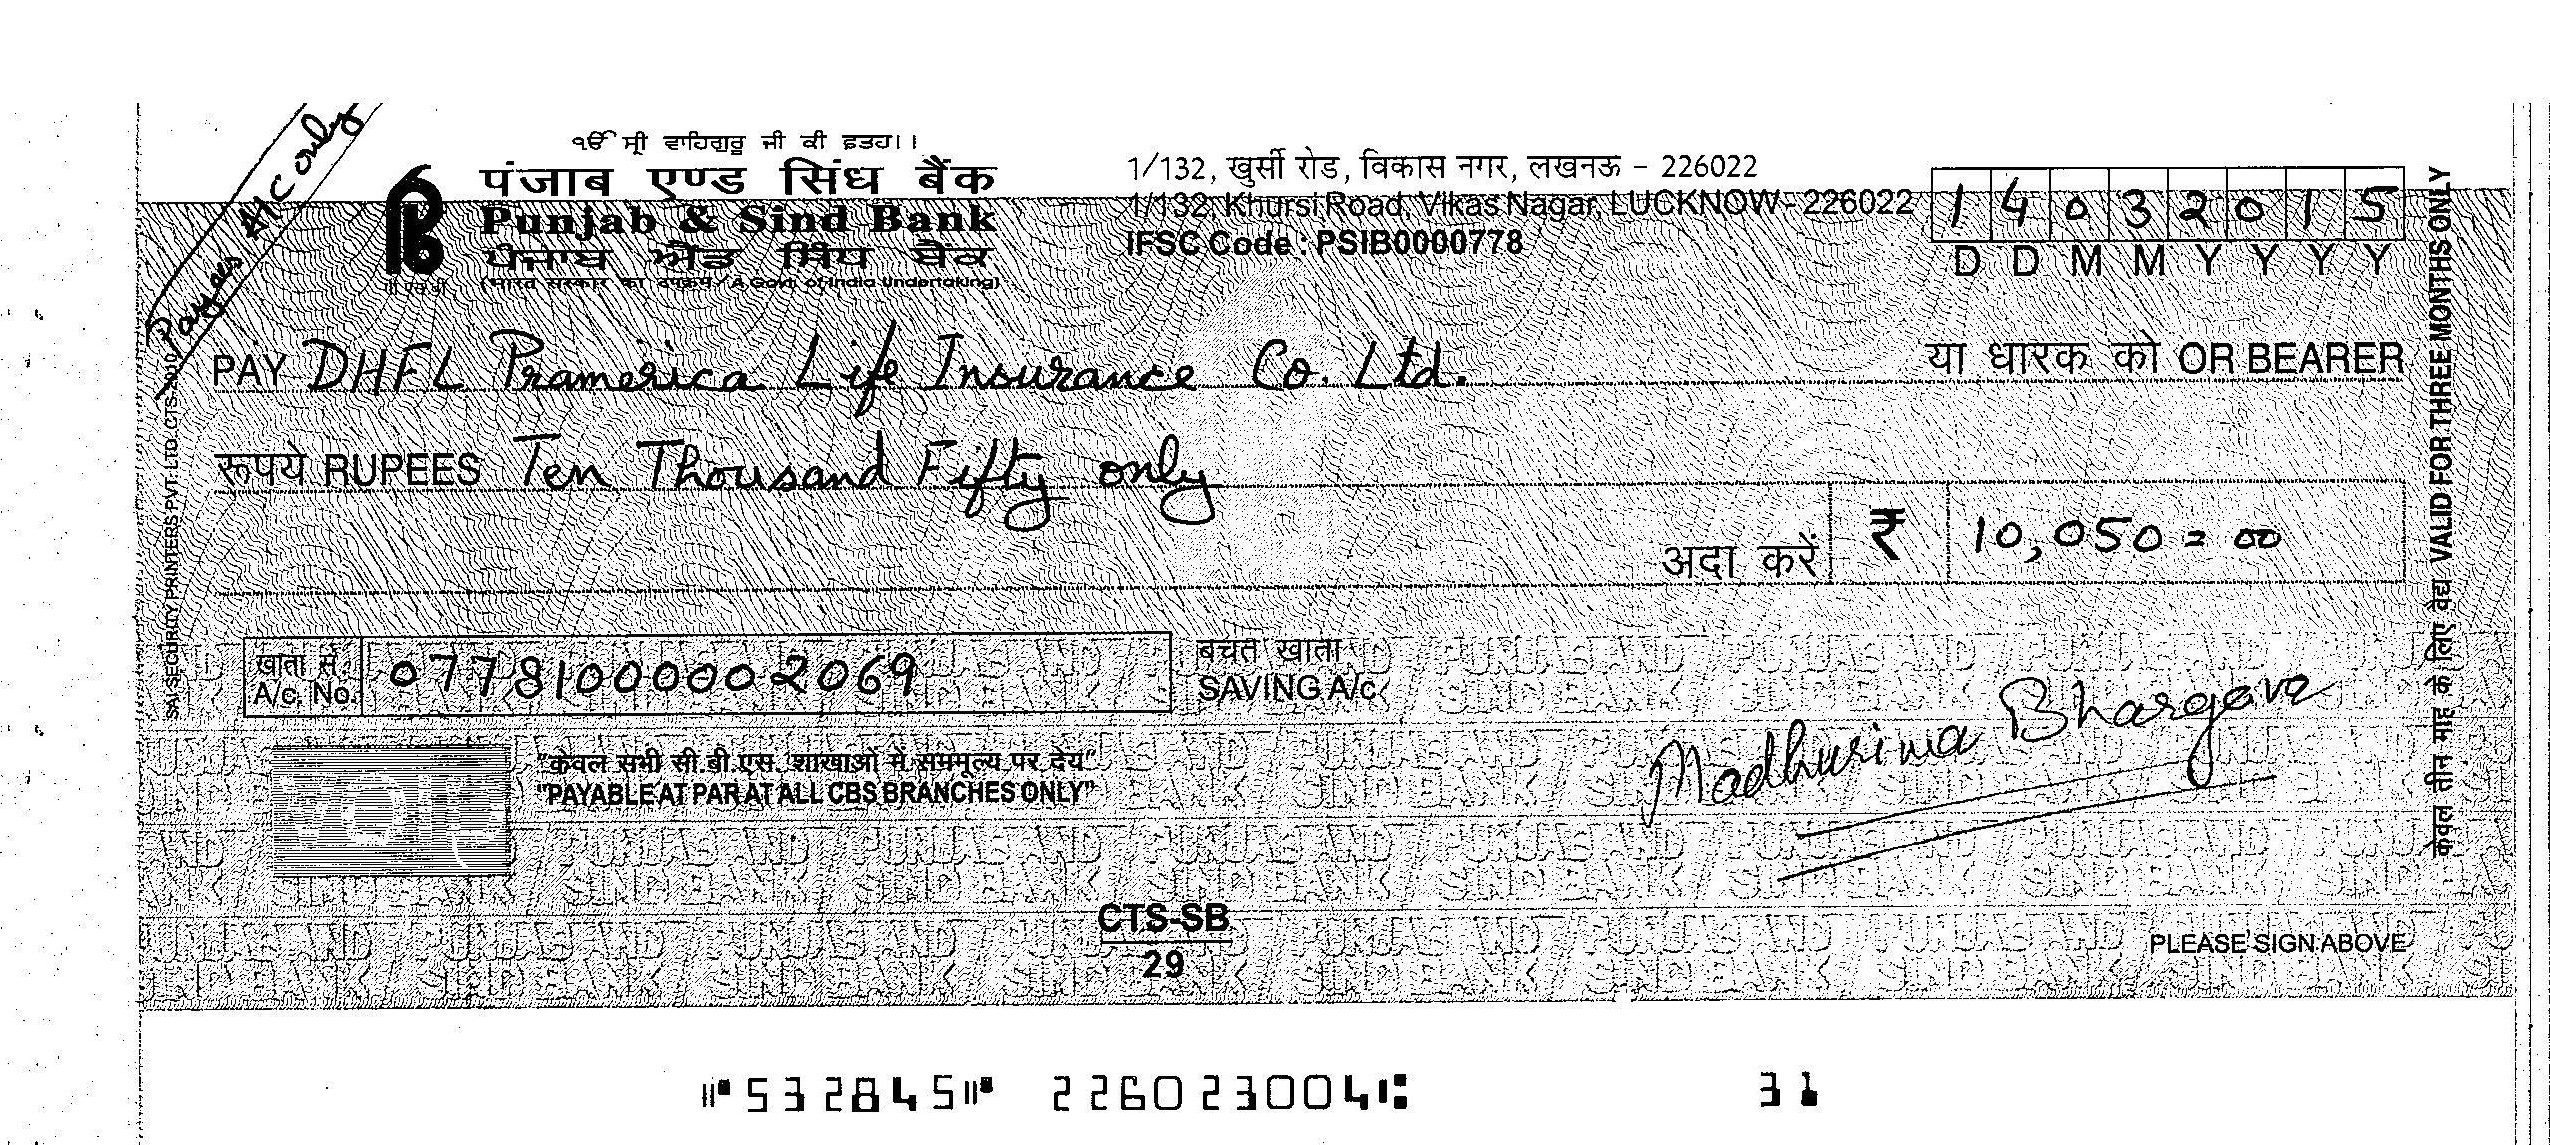 Payees A/c only
੧ਓ ਸ੍ਰੀ ਵਾਹਿਗੁਰੂ ਜੀ ਕੀ ਫ਼ਤਹ।।
पंजाब एण्ड सिंध बैंक
Punjab & Sind Bank
ਪੰਜਾਬ ਐਂਡ ਸਿੰਧ ਬੈਂਕ
(भारत सरकार का उपक्रम / A Govt. of India Undertaking)
1/132, खुर्सी रोड, विकास नगर, लखनऊ - 226022
1/132, Khursi Road, Vikas Nagar, LUCKNOW - 226022
IFSC Code : PSIB0000778
1 4 0 3 2 0 1 5
D D M M Y Y Y Y
PAY DHFL Pramerica Life Insurance Co. Ltd. या धारक को OR BEARER
रूपये RUPEES Ten Thousand Fifty only
अदा करें ₹ 10,050 = 00
खाता सं. A/c. No. 07781000002069
बचत खाता
SAVING A/c
"केवल सभी सी.बी.एस. शाखाओं में सममूल्य पर देय"
"PAYABLE AT PAR AT ALL CBS BRANCHES ONLY"
Madhurima Bhargava
CTS-SB
29
PLEASE SIGN ABOVE
SAI SECURITY PRINTERS PVT. LTD. CTS-2010
केवल तीन माह के लिए वैद्य VALID FOR THREE MONTHS ONLY
⑈532845⑈ 226023004⑆ 31